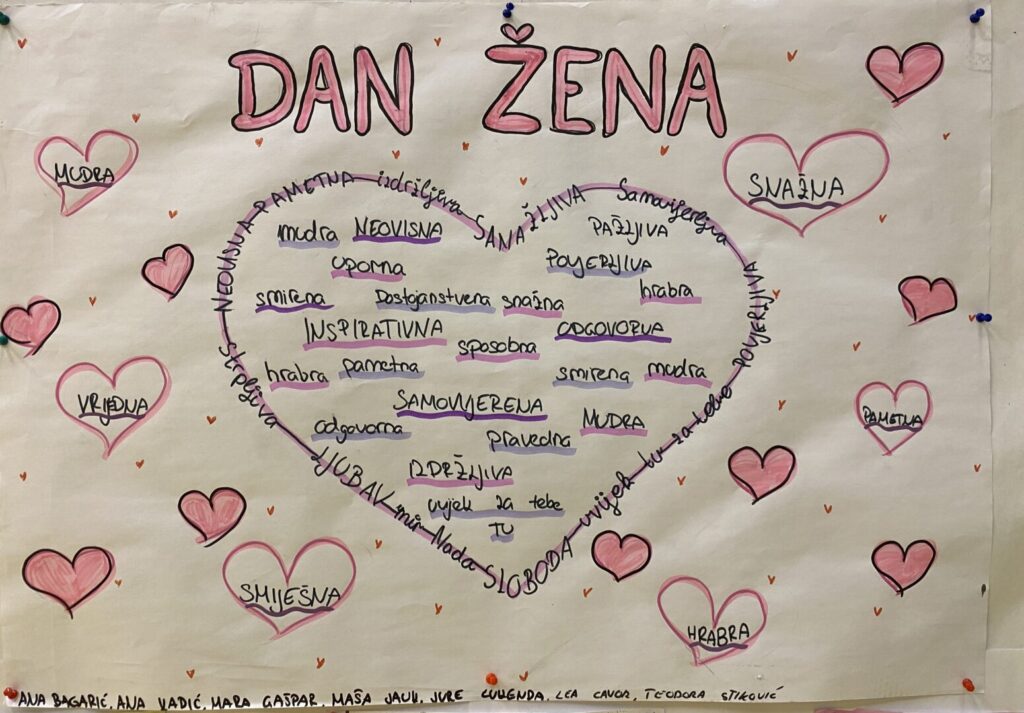 DAN ŽENA
MUDRA
SNAŽNA
NEOVISNA PAMETNA izdržljiva SANAŽLJIVA Samouvjerljiva POVJERLJIVA
strpljiva LJUBAV mir Nada SLOBODA uvijek tu za tebe
mudra NEOVISNA PAŽLJIVA
uporna POVJERLJIVA
smirena Dostojanstvena snažna hrabra
INSPIRATIVNA sposobna ODGOVORNA
hrabra pametna smirena mudra
SAMOUVJERENA
odgovorna pravedna MUDRA
IZDRŽLJIVA
uvijek za tebe
TU
VRIJEDNA
PAMETNA
SMIJEŠNA
HRABRA
ANA BAGARIĆ, ANA VADIĆ, MARA GAŠPAR, MAŠA JAUK, JURE LEA TEODORA